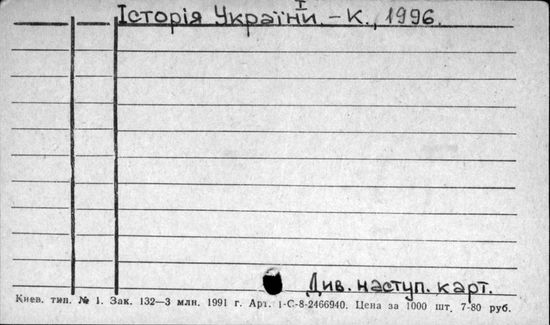 I
Історія України. – К., 1996.
Див. наступ. карт.
Киев. тип. № 1. Зак. 132—3 млн. 1991 г. Арт. 1-С-8-2466940. Цена за 1000 шт. 7-80 руб.